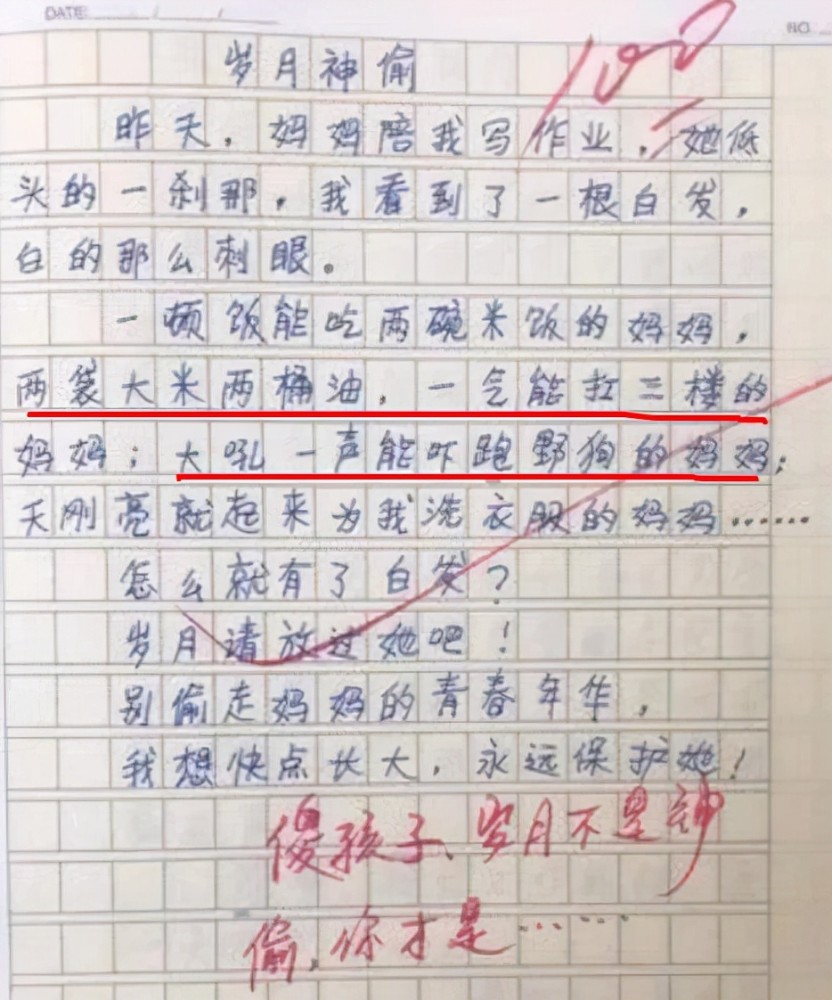 DATE: / /
NO
100
岁月神偷
昨天，妈妈陪我写作业，她低
头的一刹那，我看到了一根白发，
白的那么刺眼。
一顿饭能吃两碗米饭的妈妈，
两袋大米两桶油，一气能扛三楼的
妈妈；大吼一声能吓跑野狗的妈妈；
天刚亮就起来为我洗衣服的妈妈……
怎么就有了白发？
岁月请放过她吧！
别偷走妈妈的青春年华，
我想快点长大，永远保护她！
傻孩子、岁月不是神
偷，你才是……